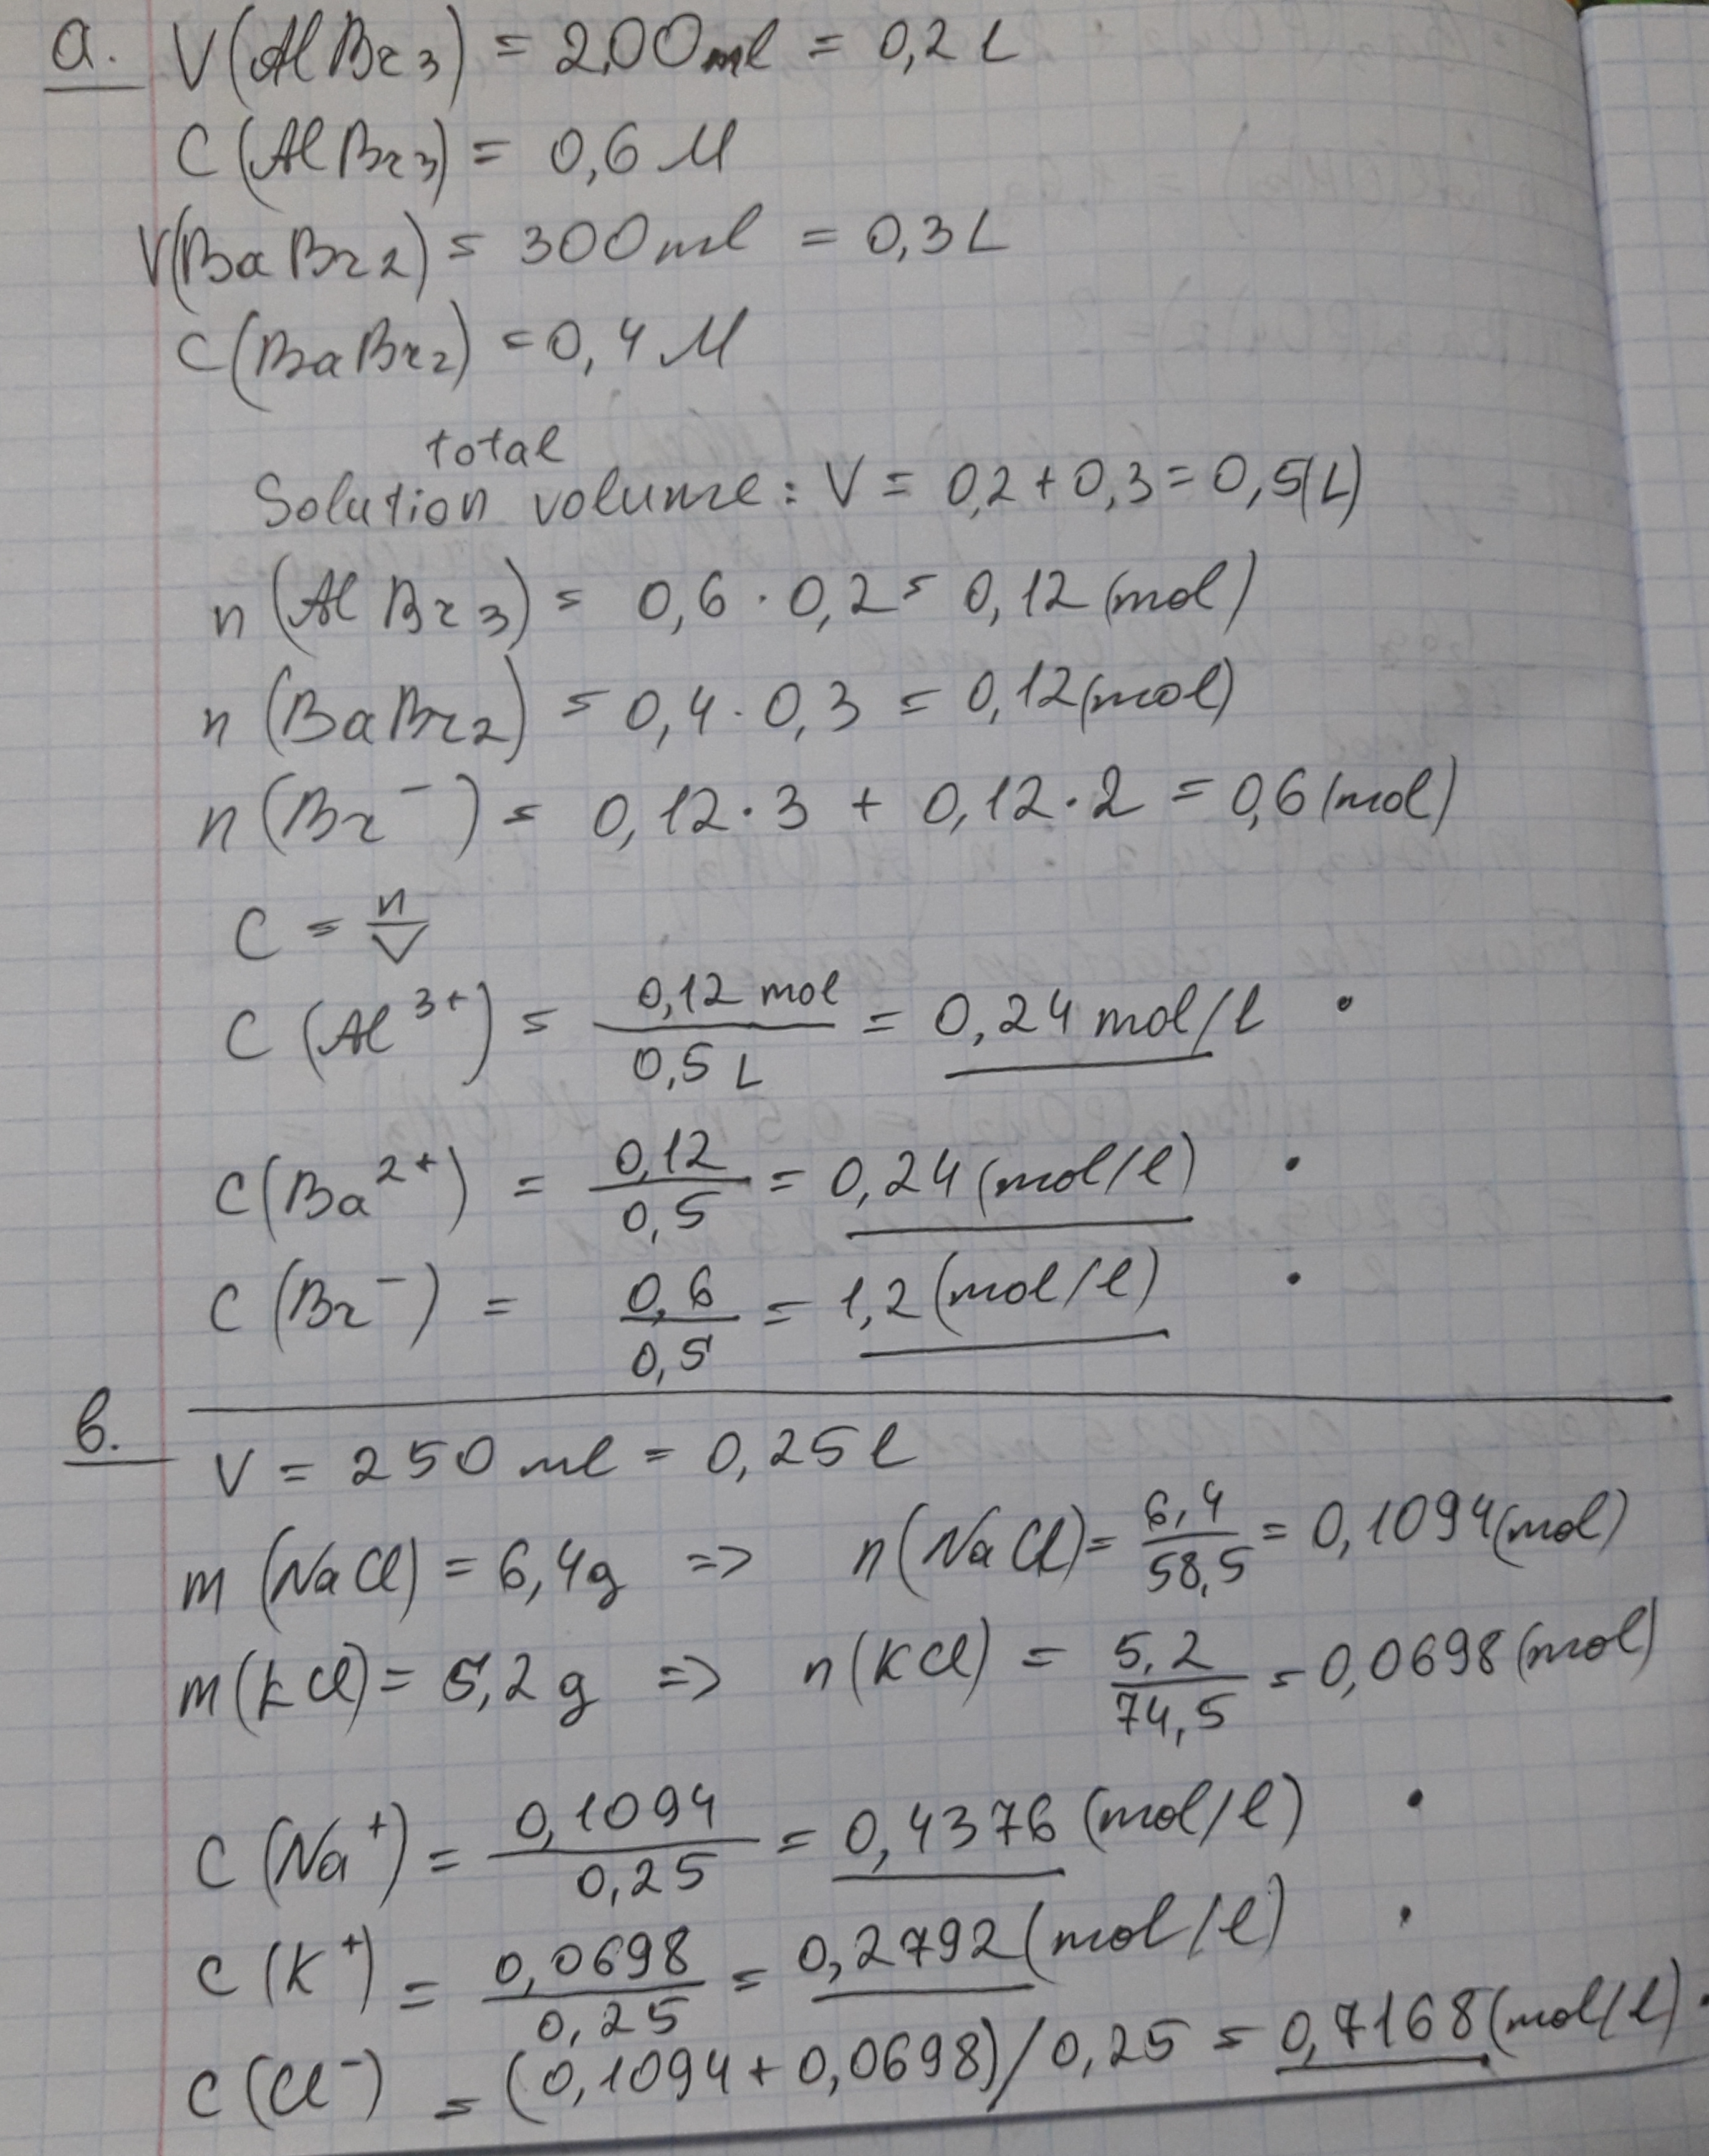 a. V(AlBr3) = 200ml = 0,2 L
C(AlBr3) = 0,6 M
V(BaBr2) = 300ml = 0,3 L
C(BaBr2) = 0,4 M
total
Solution volume: V = 0,2 + 0,3 = 0,5(L)
n(AlBr3) = 0,6 · 0,2 = 0,12 (mol)
n(BaBr2) = 0,4 · 0,3 = 0,12 (mol)
n(Br⁻) = 0,12 · 3 + 0,12 · 2 = 0,6 (mol)
C = n/V
C(Al³⁺) = 0,12 mol / 0,5 L = 0,24 mol/l •
C(Ba²⁺) = 0,12 / 0,5 = 0,24 (mol/l) •
C(Br⁻) = 0,6 / 0,5 = 1,2 (mol/l) •
b. V = 250 ml = 0,25 l
m(NaCl) = 6,4g => n(NaCl) = 6,4 / 58,5 = 0,1094 (mol)
m(KCl) = 5,2g => n(KCl) = 5,2 / 74,5 = 0,0698 (mol)
C(Na⁺) = 0,1094 / 0,25 = 0,4376 (mol/l) •
C(K⁺) = 0,0698 / 0,25 = 0,2792 (mol/l) •
C(Cl⁻) = (0,1094 + 0,0698) / 0,25 = 0,7168 (mol/l) •